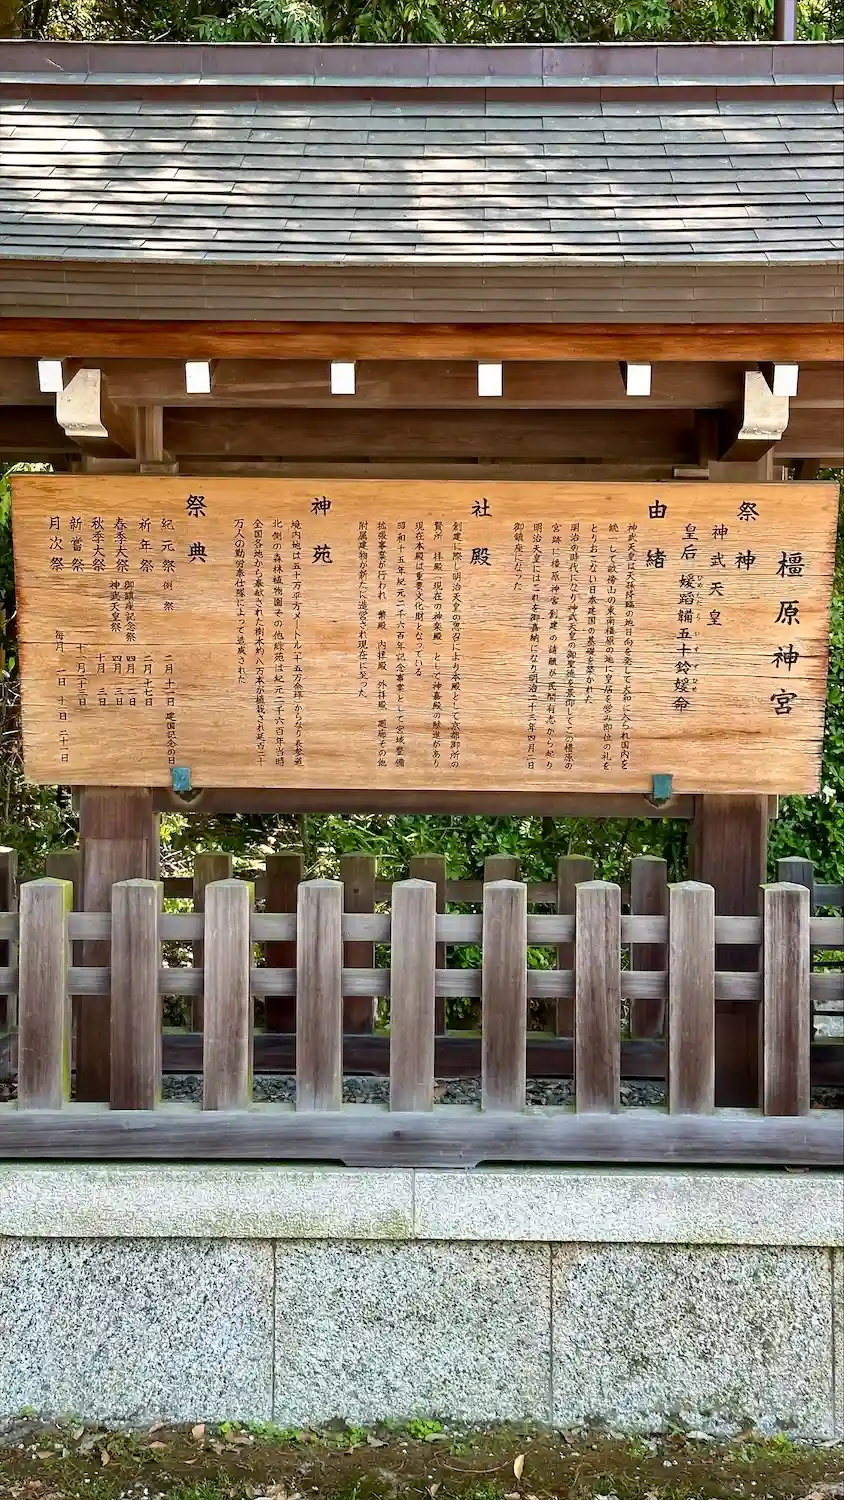 橿原神宮
祭神
神武天皇
皇后 媛蹈鞴五十鈴媛命
由緒
神武天皇は天孫降臨の地日向を発して大和に入られ国内を
統一して畝傍山の東南橿原の地に皇居を営み即位の礼を
とりおこない日本建国の基礎を築かれた
明治の時代になり神武天皇の御聖徳を景仰してこの橿原の
宮跡に橿原神宮創建の請願が民間有志から起り
明治天皇にはこれを御嘉納になり明治二十三年四月二日
御鎮座になった
社殿
創建に際し明治天皇の思召により本殿として京都御所の
賢所 拝殿(現在の神楽殿)として神嘉殿の下賜があり
現在本殿は重要文化財となっている
昭和十五年紀元二千六百年記念事業として宮域整備
拡張事業が行われ 幣殿 内拝殿 外拝殿 廻廊その他
附属建物が新たに造営され現在に至った
神苑
境内地は五十万平方メートル(十五万余坪)からなり長参道
北側の森林植物園その他緑苑は紀元二千六百年当時
全国各地から奉献された樹木約八万本が植栽され延百二十
万人の勤労奉仕隊によって造成された
祭典
紀元祭 例祭 二月十一日 建国記念の日
祈年祭 二月十七日
春季大祭 御鎮座記念祭 四月二日
神武天皇祭 四月三日
秋季大祭 十月三日
新嘗祭 十一月二十三日
月次祭 毎月 一日 十一日 二十一日